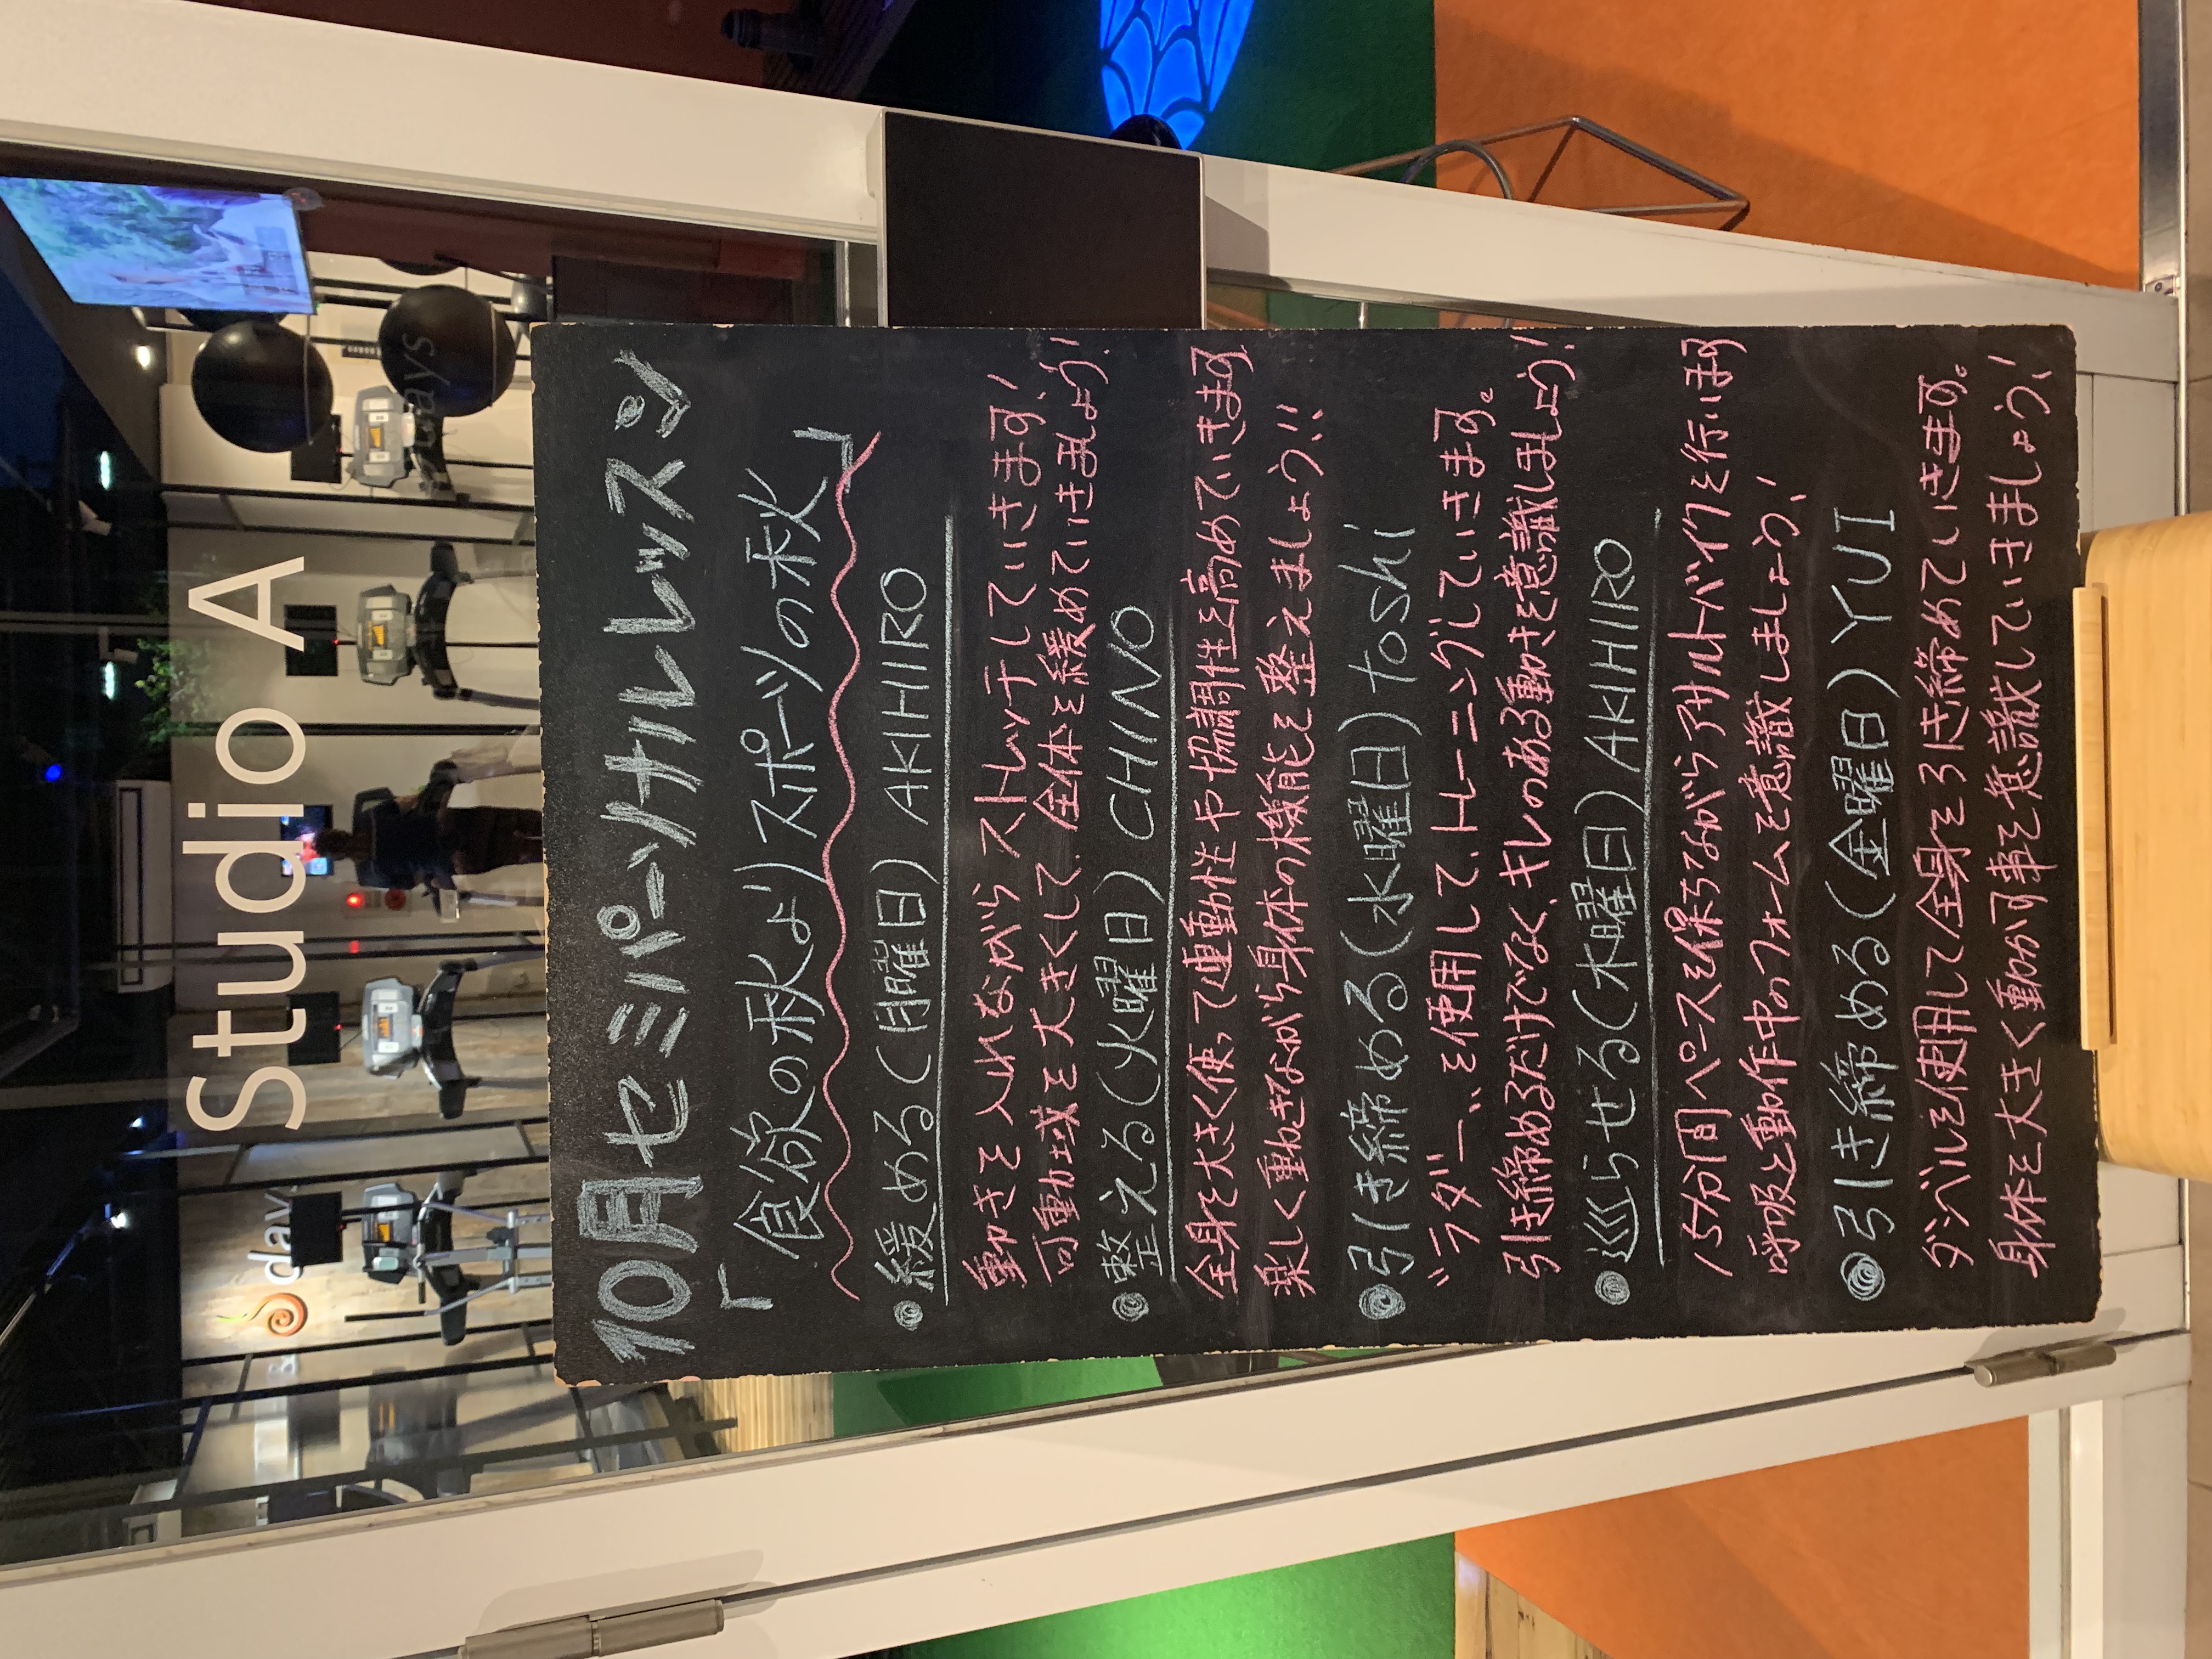 Studio A
days
days
10月セミパーソナルレッスン
「食欲の秋よりスポーツの秋」
緩める(月曜日)AKIHIRO
動きを入れながらストレッチしていきます!
可動域を大きくして、全体を緩めていきましょう!
整える(火曜日)CHINO
全身を大きく使って連動性や協調性を高めていきます
楽しく動きながら身体の機能を整えましょう!!
引き締める(水曜日)toshi
"ラダー"を使用して、トレーニングしていきます。
引き締めるだけでなく、キレのある動きを意識しましょう!
巡らせる(木曜日)AKIHIRO
15分間ペースを保ちながらアサルトバイクを行います
呼吸と動作中のフォームを意識しましょう!
引き締める(金曜日)YUI
ダンベルを使用して全身を引き締めていきます。
身体を大きく動かす事を意識していきましょう!